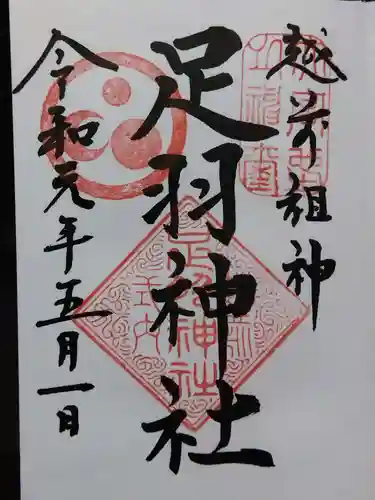 越前祖神
足羽神社
令和元年五月一日
足羽神社